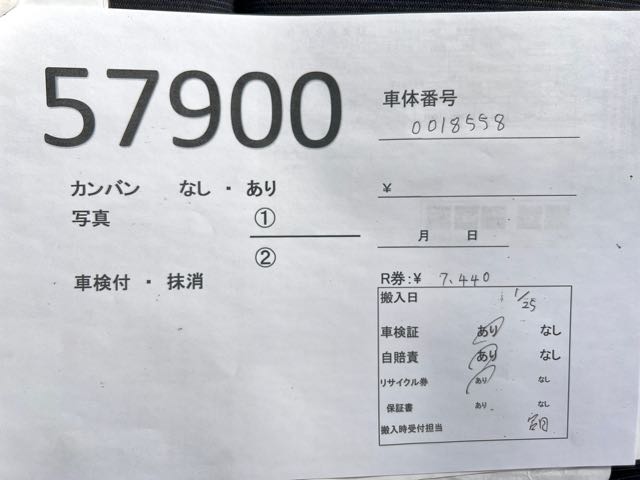 57900
車体番号
0018558
カンバン なし ・ あり
¥
写真 ①
②
月 日
車検付 ・ 抹消
R券:¥ 7,440
搬入日 1/25
車検証 あり なし
自賠責 あり なし
リサイクル券 あり なし
保証書 あり なし
搬入時受付担当